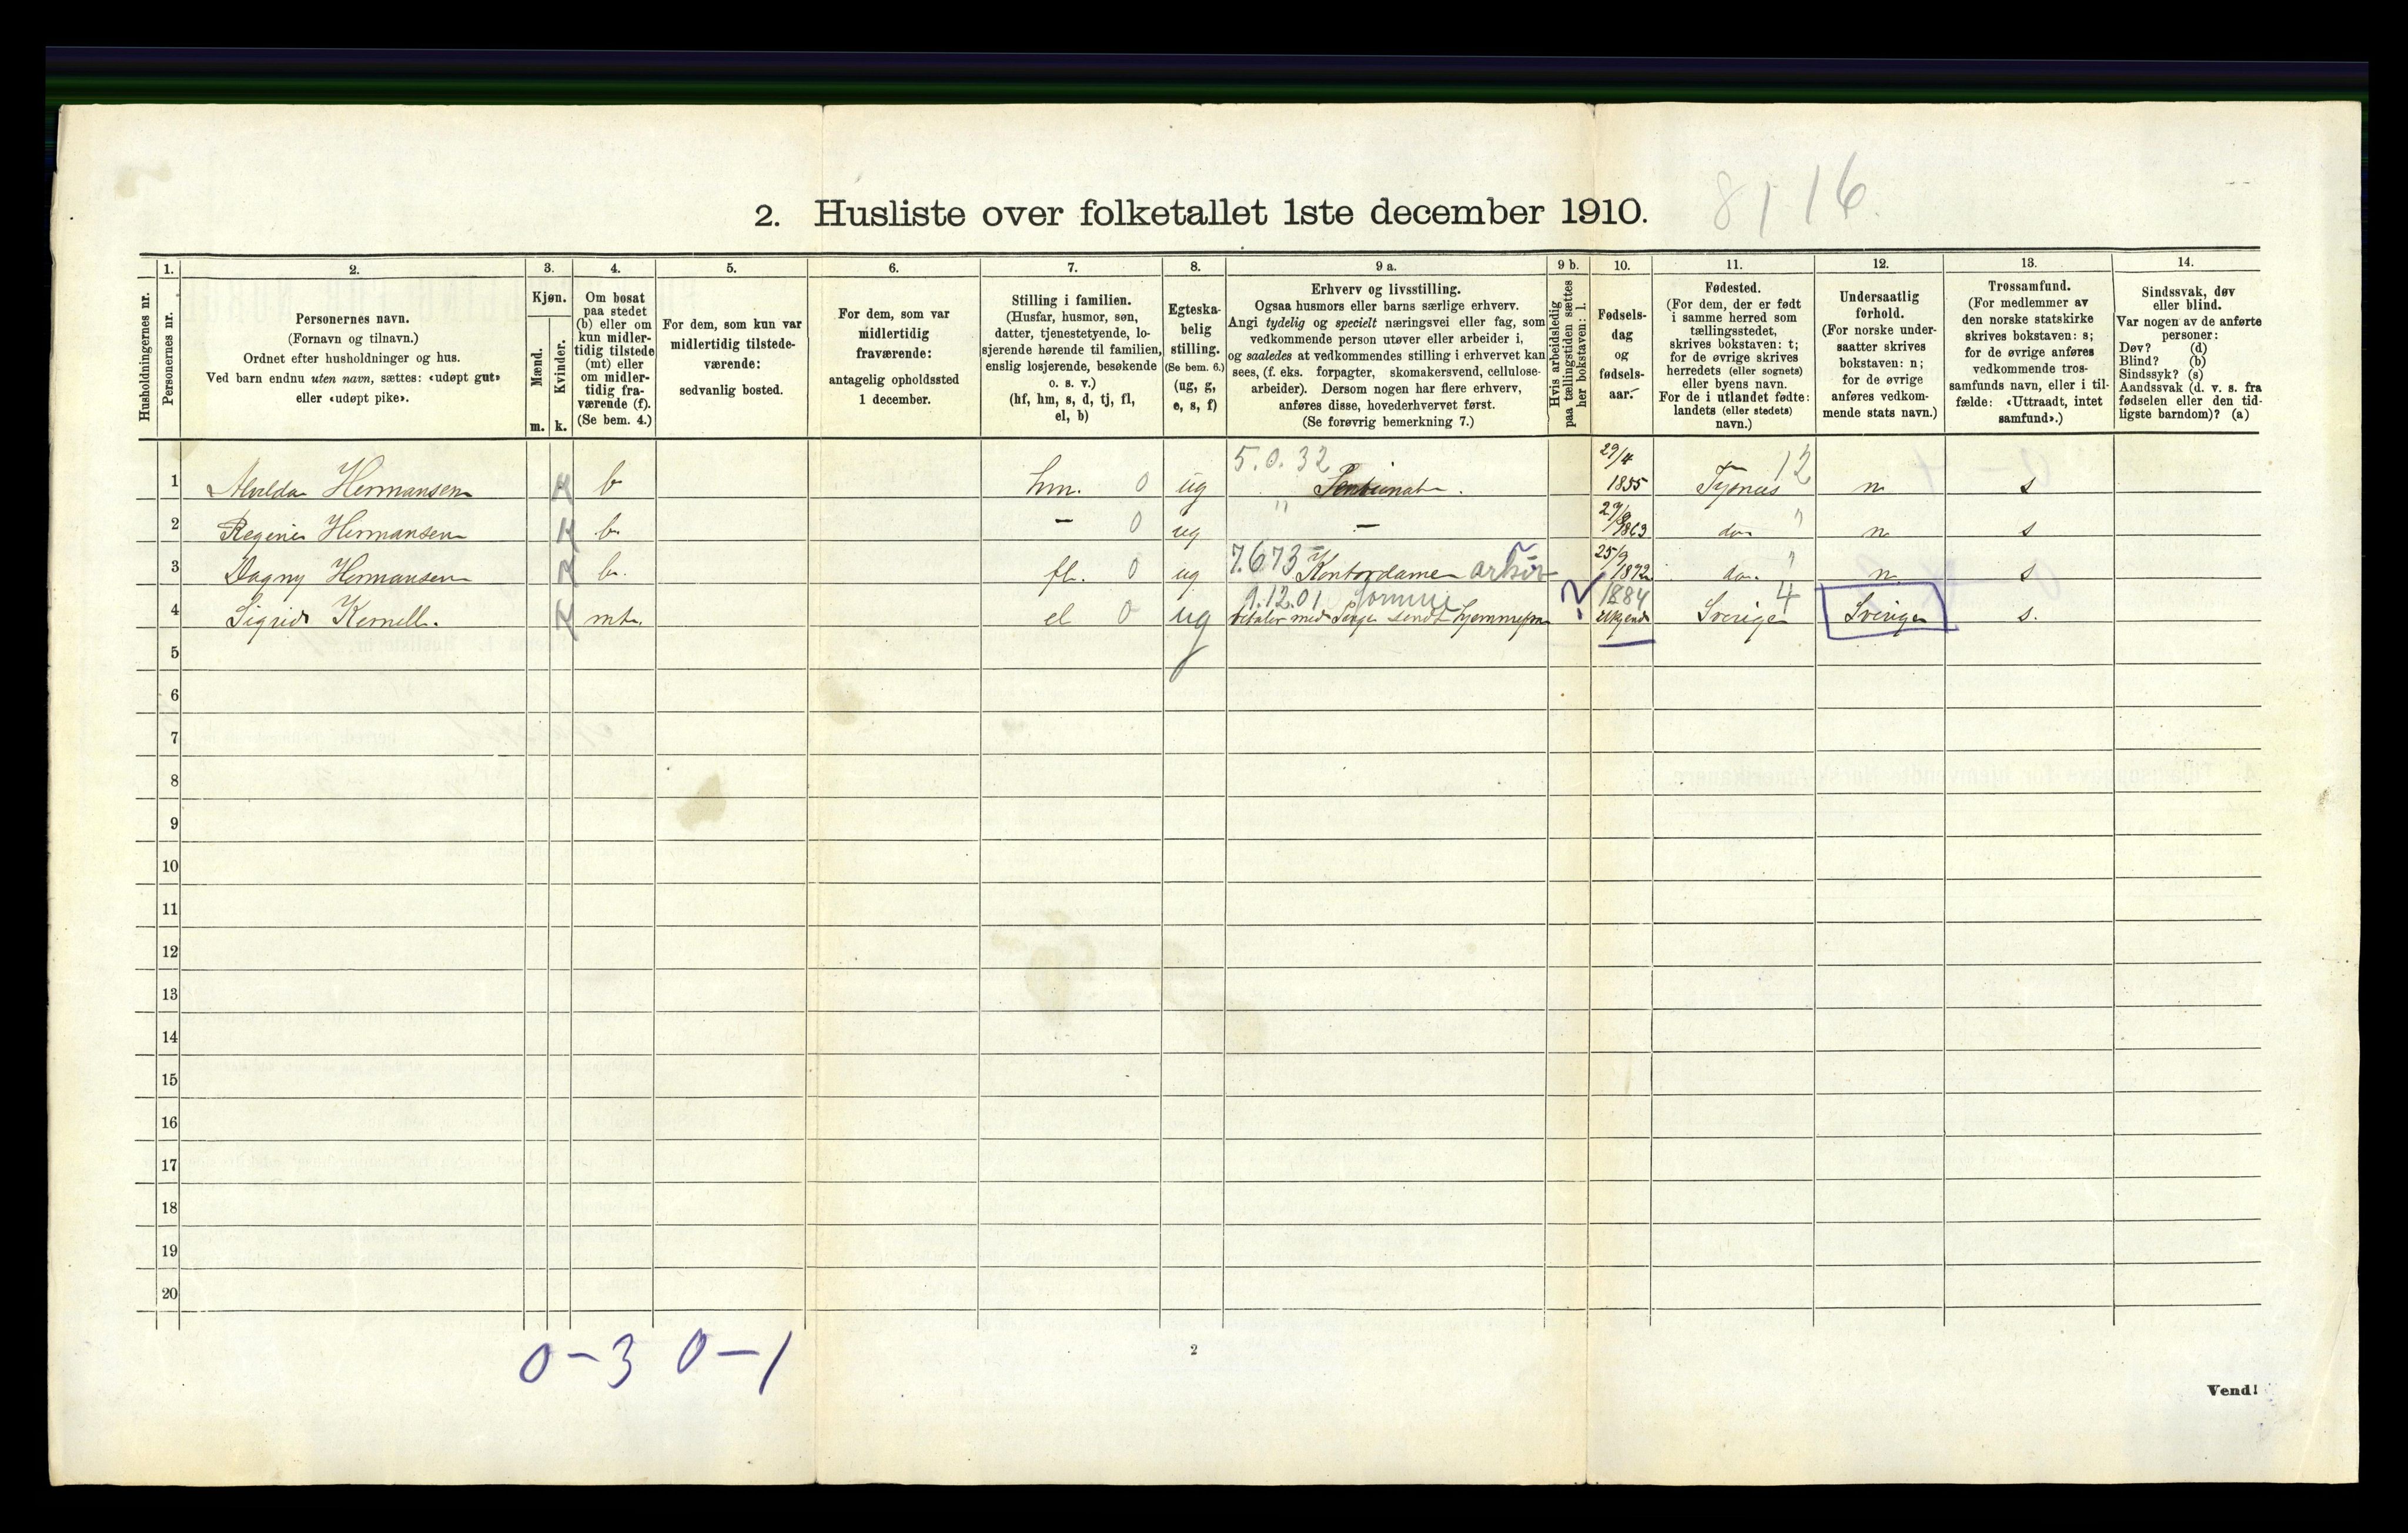 2. Husliste over folketallet 1ste december 1910.
8116.
Husholdningernes nr.
1.
Personernes nr.
2.
Personernes navn.
(Fornavn og tilnavn.)
Ordnet efter husholdninger og hus.
Ved barn endnu uten navn, sættes: «udøpt gut»
eller «udøpt pike».
3.
Kjøn.
Mænd.
Kvinder.
m. k.
4.
Om bosat
paa stedet
(b) eller om
kun midler-
tidig tilstede
(mt) eller
om midler-
tidig fra-
værende (f).
(Se bem. 4.)
5.
For dem, som kun var
midlertidig tilstede-
værende:
sedvanlig bosted.
6.
For dem, som var
midlertidig
fraværende:
antagelig opholdssted
1 december.
7.
Stilling i familien.
(Husfar, husmor, søn,
datter, tjenestetyende, lo-
sjerende hørende til familien,
enslig losjerende, besøkende
o. s. v.)
(hf, hm, s, d, tj, fl,
el, b)
8.
Egteska-
belig
stilling.
(Se bem. 6.)
(ug, g,
e, s, f)
9 a.
Erhverv og livsstilling.
Ogsaa husmors eller barns særlige erhverv.
Angi tydelig og specielt næringsvei eller fag, som
vedkommende person utøver eller arbeider i,
og saaledes at vedkommendes stilling i erhvervet kan
sees, (f. eks. forpagter, skomakersvend, cellulose-
arbeider). Dersom nogen har flere erhverv,
anføres disse, hovederhvervet først.
(Se forøvrig bemerkning 7.)
9 b.
Hvis arbeidsledig
paa tællingstiden sættes
her bokstaven: l.
10.
Fødsels-
dag
og
fødsels-
aar.
11.
Fødested.
(For dem, der er født
i samme herred som
tællingsstedet,
skrives bokstaven: t;
for de øvrige skrives
herredets (eller sognets)
eller byens navn.
For de i utlandet fødte:
landets (eller stedets)
navn.)
12.
Undersaatlig
forhold.
(For norske under-
saatter skrives
bokstaven: n;
for de øvrige
anføres vedkom-
mende stats navn.)
13.
Trossamfund.
(For medlemmer av
den norske statskirke
skrives bokstaven: s;
for de øvrige anføres
vedkommende tros-
samfunds navn, eller i til-
fælde: «Uttraadt, intet
samfund».)
14.
Sindssvak, døv
eller blind.
Var nogen av de anførte
personer:
Døv? (d)
Blind? (b)
Sindssyk? (s)
Aandssvak (d. v. s. fra
fødselen eller den tid-
ligste barndom)? (a)
5.0.32 29/4 12
1 Alvilda Hermansen b hm. 0 ug Pensionat. 1855 Tysnes n s
2 Regine Hermansen b — 0 ug " — 1863 do " n s
7.673 25/9
3 Dagny Hermansen b. fl. 0 ug Kontordame 1872 do. " n s
9.12.01 1884 4
4 Sigrid Kernell. mt. el 0 ug betaler med Penge sendt hjemmefra ? Ukjend Sverige Sverige s.
5
6
7
8
9
10
11
12
13
14
15
16
17
18
19
20
0 – 3 0 – 1
2
Vend!